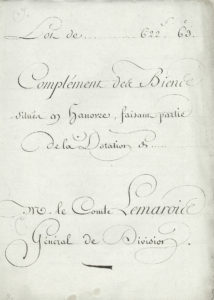 Lot de ........ 622 f. 63.
Complément des Biens
situés en Hanovre, faisant partie
de la Dotation de .....
Mr. le Comte Lemarois
Général de Division.